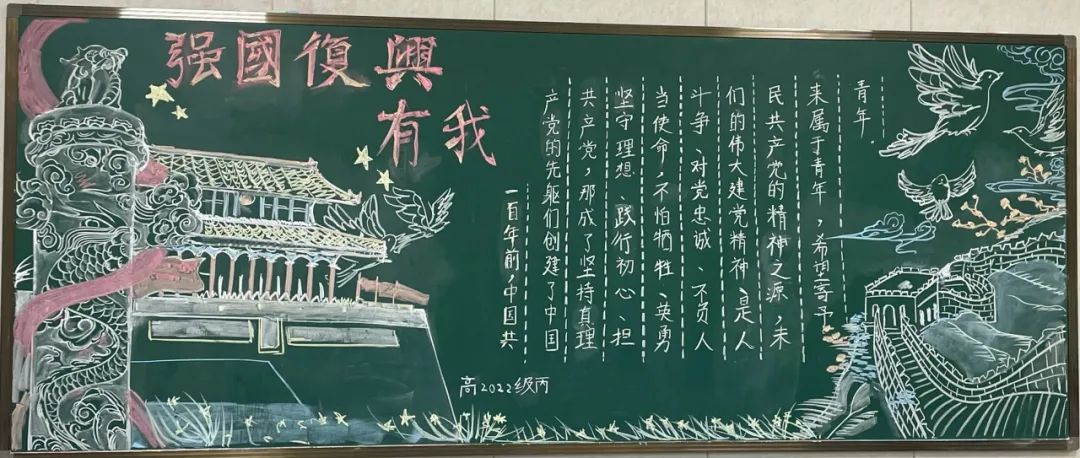 强國復興
有我
一百年前，中国共
产党的先驱们创建了中国
共产党，那成了坚持真理
坚守理想、践行初心、担
当使命，不怕牺牲、英勇
斗争、对党忠诚、不负人
们的伟大建党精神、是人
民共产党的精神之源，未
来属于青年，希望寄予
青年.
高2022级丙